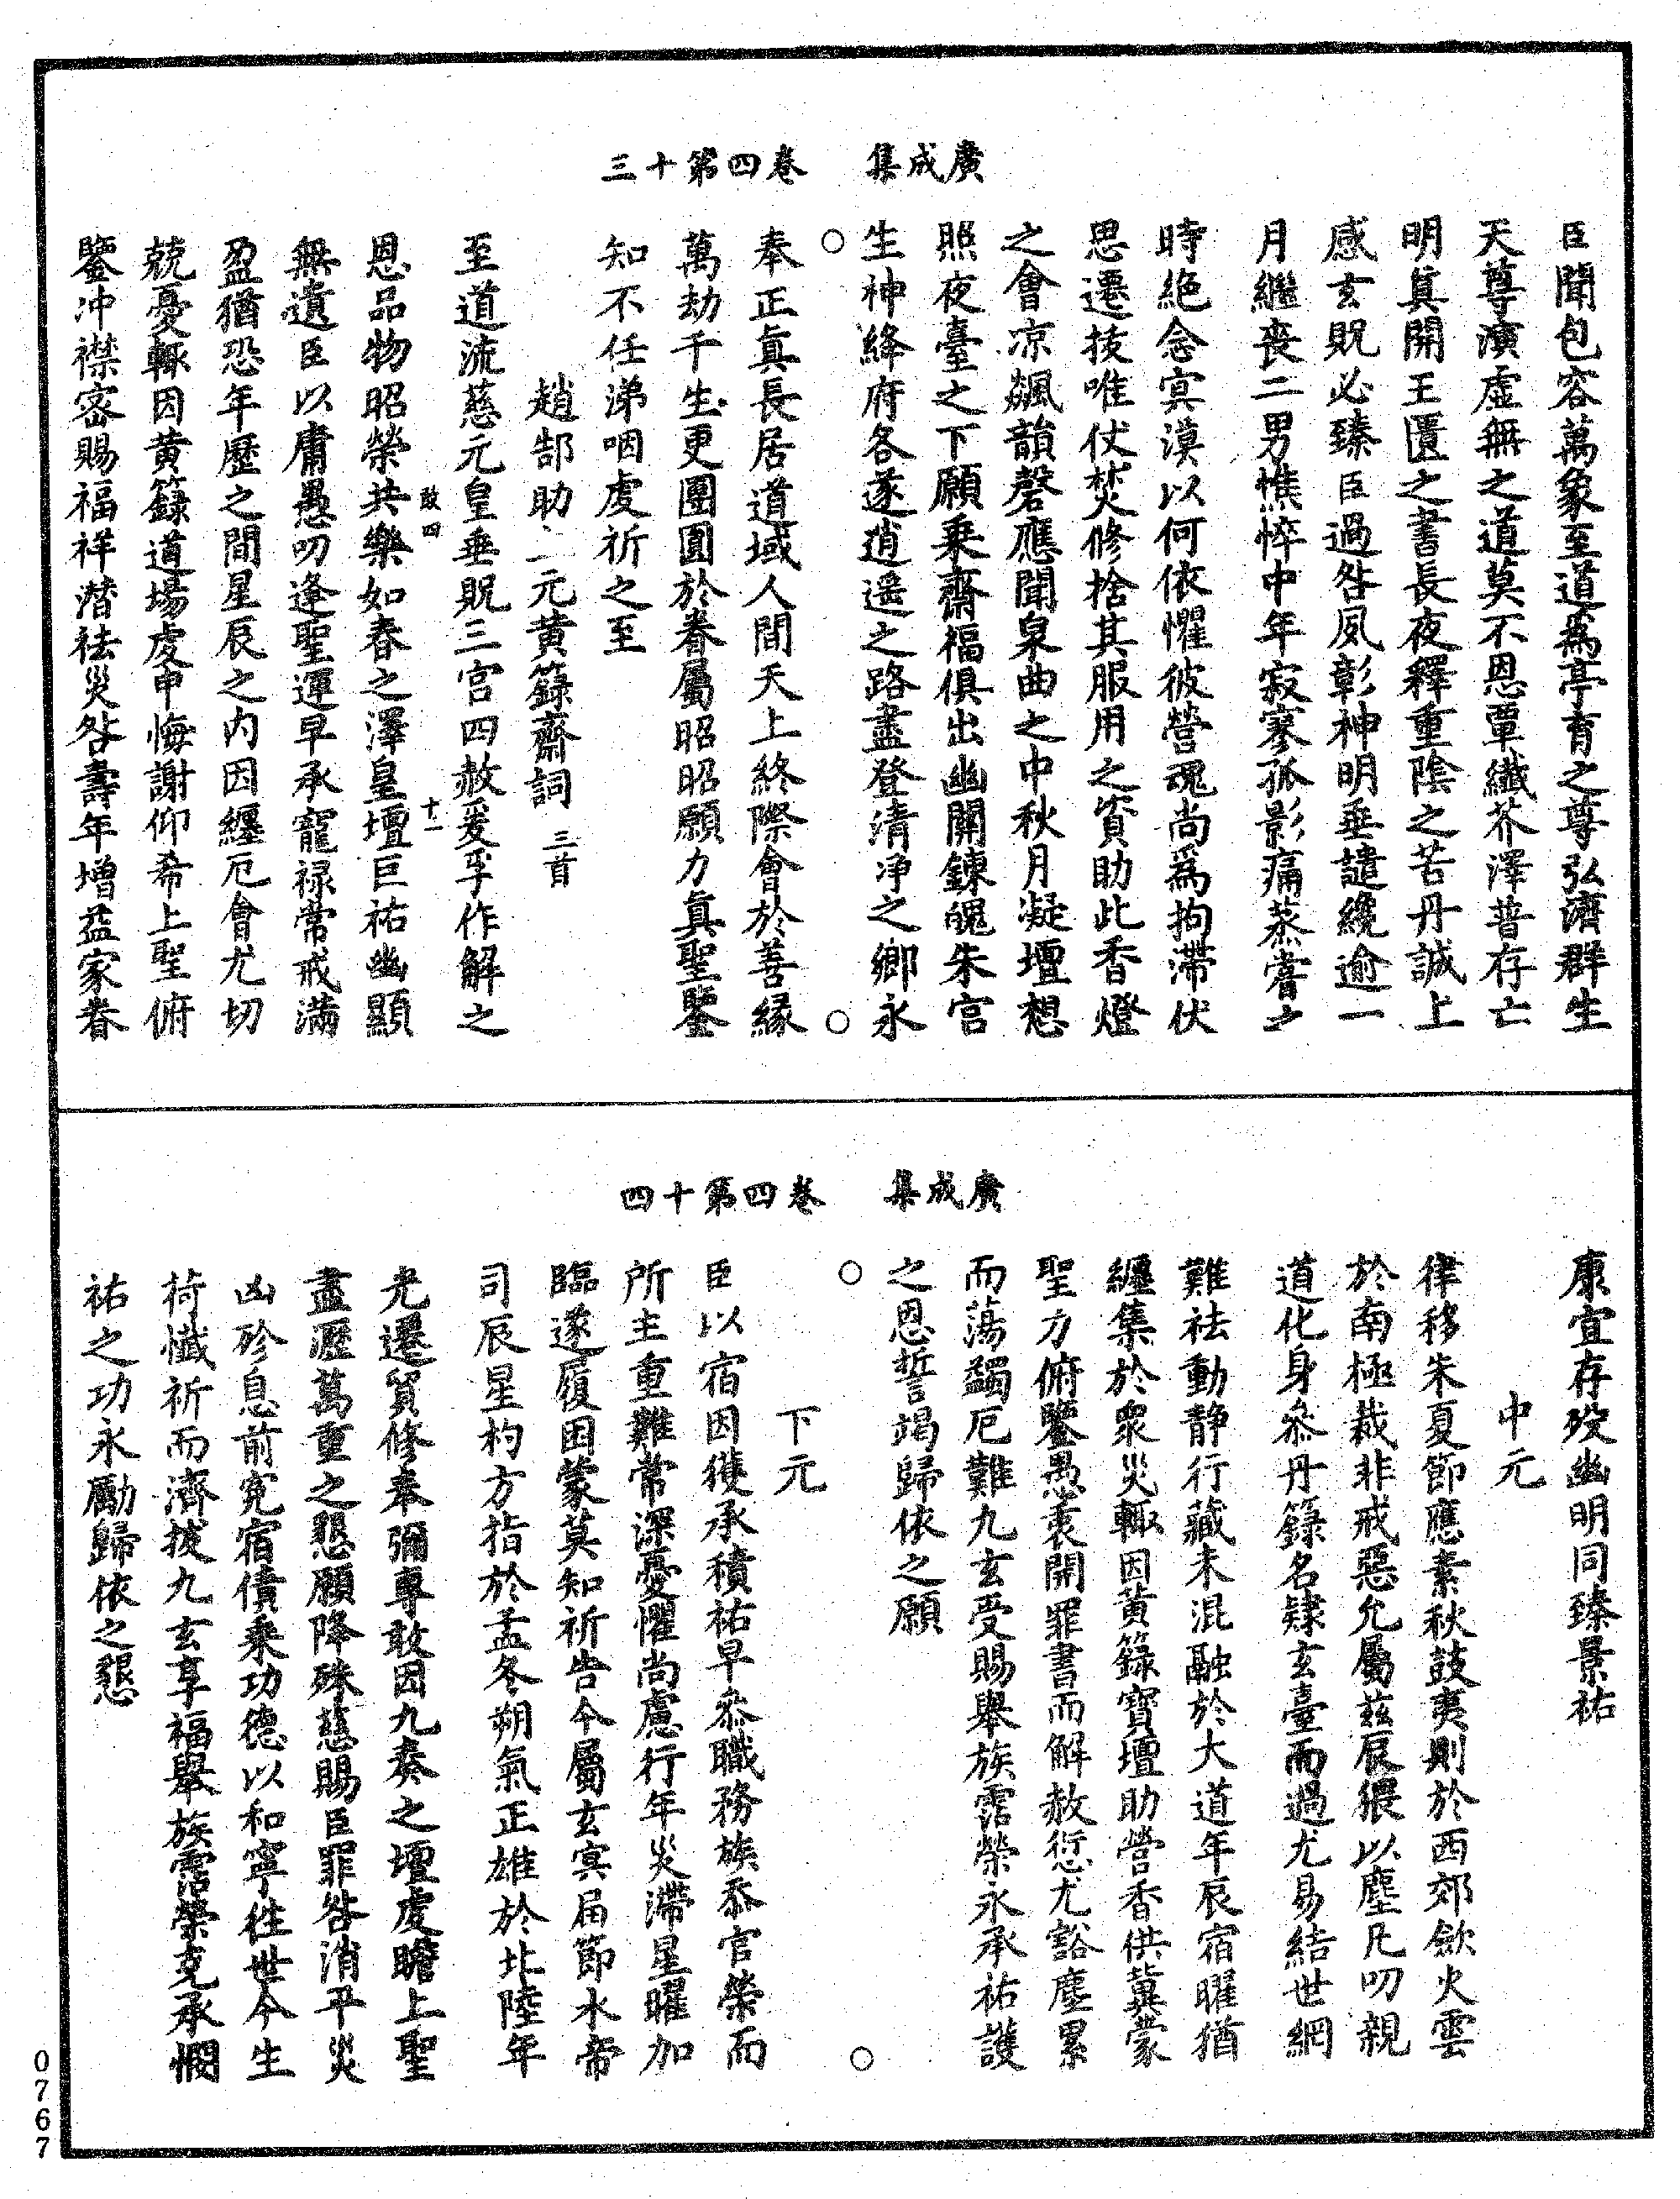 廣成集　卷四第十三
臣聞包容萬象至道爲亭育之尊弘濟群生
天尊演虛無之道莫不恩覃纖芥澤普存亡
明真開王匱之書長夜釋重陰之苦丹誠上
感玄貺必臻臣過咎夙彰神明垂譴纔逾一
月繼喪二男憔悴中年寂寥孤影痛蒸嘗之
時絶念寞漠以何依懼彼營魂尚爲拘滯伏
思遷拔唯仗焚修捨其服用之資助此香燈
之會凉飆韻磬應聞泉曲之中秋月凝壇想
照夜臺之下願乗齋福俱出幽關鍊魄朱宫
生神絳府各遂逍遥之路盡登清净之鄉永
奉正真長居道域人間天上終際會於善緣
萬劫千生更團圓於眷屬昭昭願力真聖鑒
知不任涕咽虔祈之至
趙郜助二元黄籙齋詞 三首
至道流慈元皇垂貺三宫四赦爰孚作解之
恩品物昭榮共樂如春之澤皇壇巨祐幽顯
敢四　十一
無遺臣以庸愚叨逢聖運早承寵禄常戒滿
盈猶恐年歷之間星辰之内因纏厄會尤切
兢憂輒因黄籙道場虔申悔謝仰希上聖俯
鑒冲襟密賜福祥潛祛災咎壽年增益家眷
廣成集　卷四第十四
康宜存殁幽明同臻景祐
中元
律移朱夏節應素秋鼓夷則於西郊歛火雲
於南極裁非戒惡允屬兹辰猥以塵凡叨親
道化身叅丹籙名肄玄臺而過尤易結世網
難祛動静行藏未混融於大道年辰宿曜猶
纏集於衆災輒因黄籙寶壇助營香供冀蒙
聖力俯鑒愚衷開罪書而解赦愆尤豁塵累
而蕩蠲厄難九玄受賜舉族霑榮永承祐護
之恩誓竭歸依之願
下元
臣以宿因獲承積祐早叅職務族忝官榮而
所主重難常深憂懼尚慮行年災滯星曜加
臨遂履困蒙莫知祈告今屬玄寞届節水帝
司辰星杓方指於孟冬朔氣正雄於北陸年
光遷貿修奉彌專敢因九奏之壇虔瞻上聖
盡瀝萬重之懇願降殊慈賜臣罪咎消平災
凶殄息前寃宿債乘功德以和寧徃世今生
荷懺祈而濟拔九玄享福舉族霑榮克承憫
祐之功永勵歸依之懇
0767